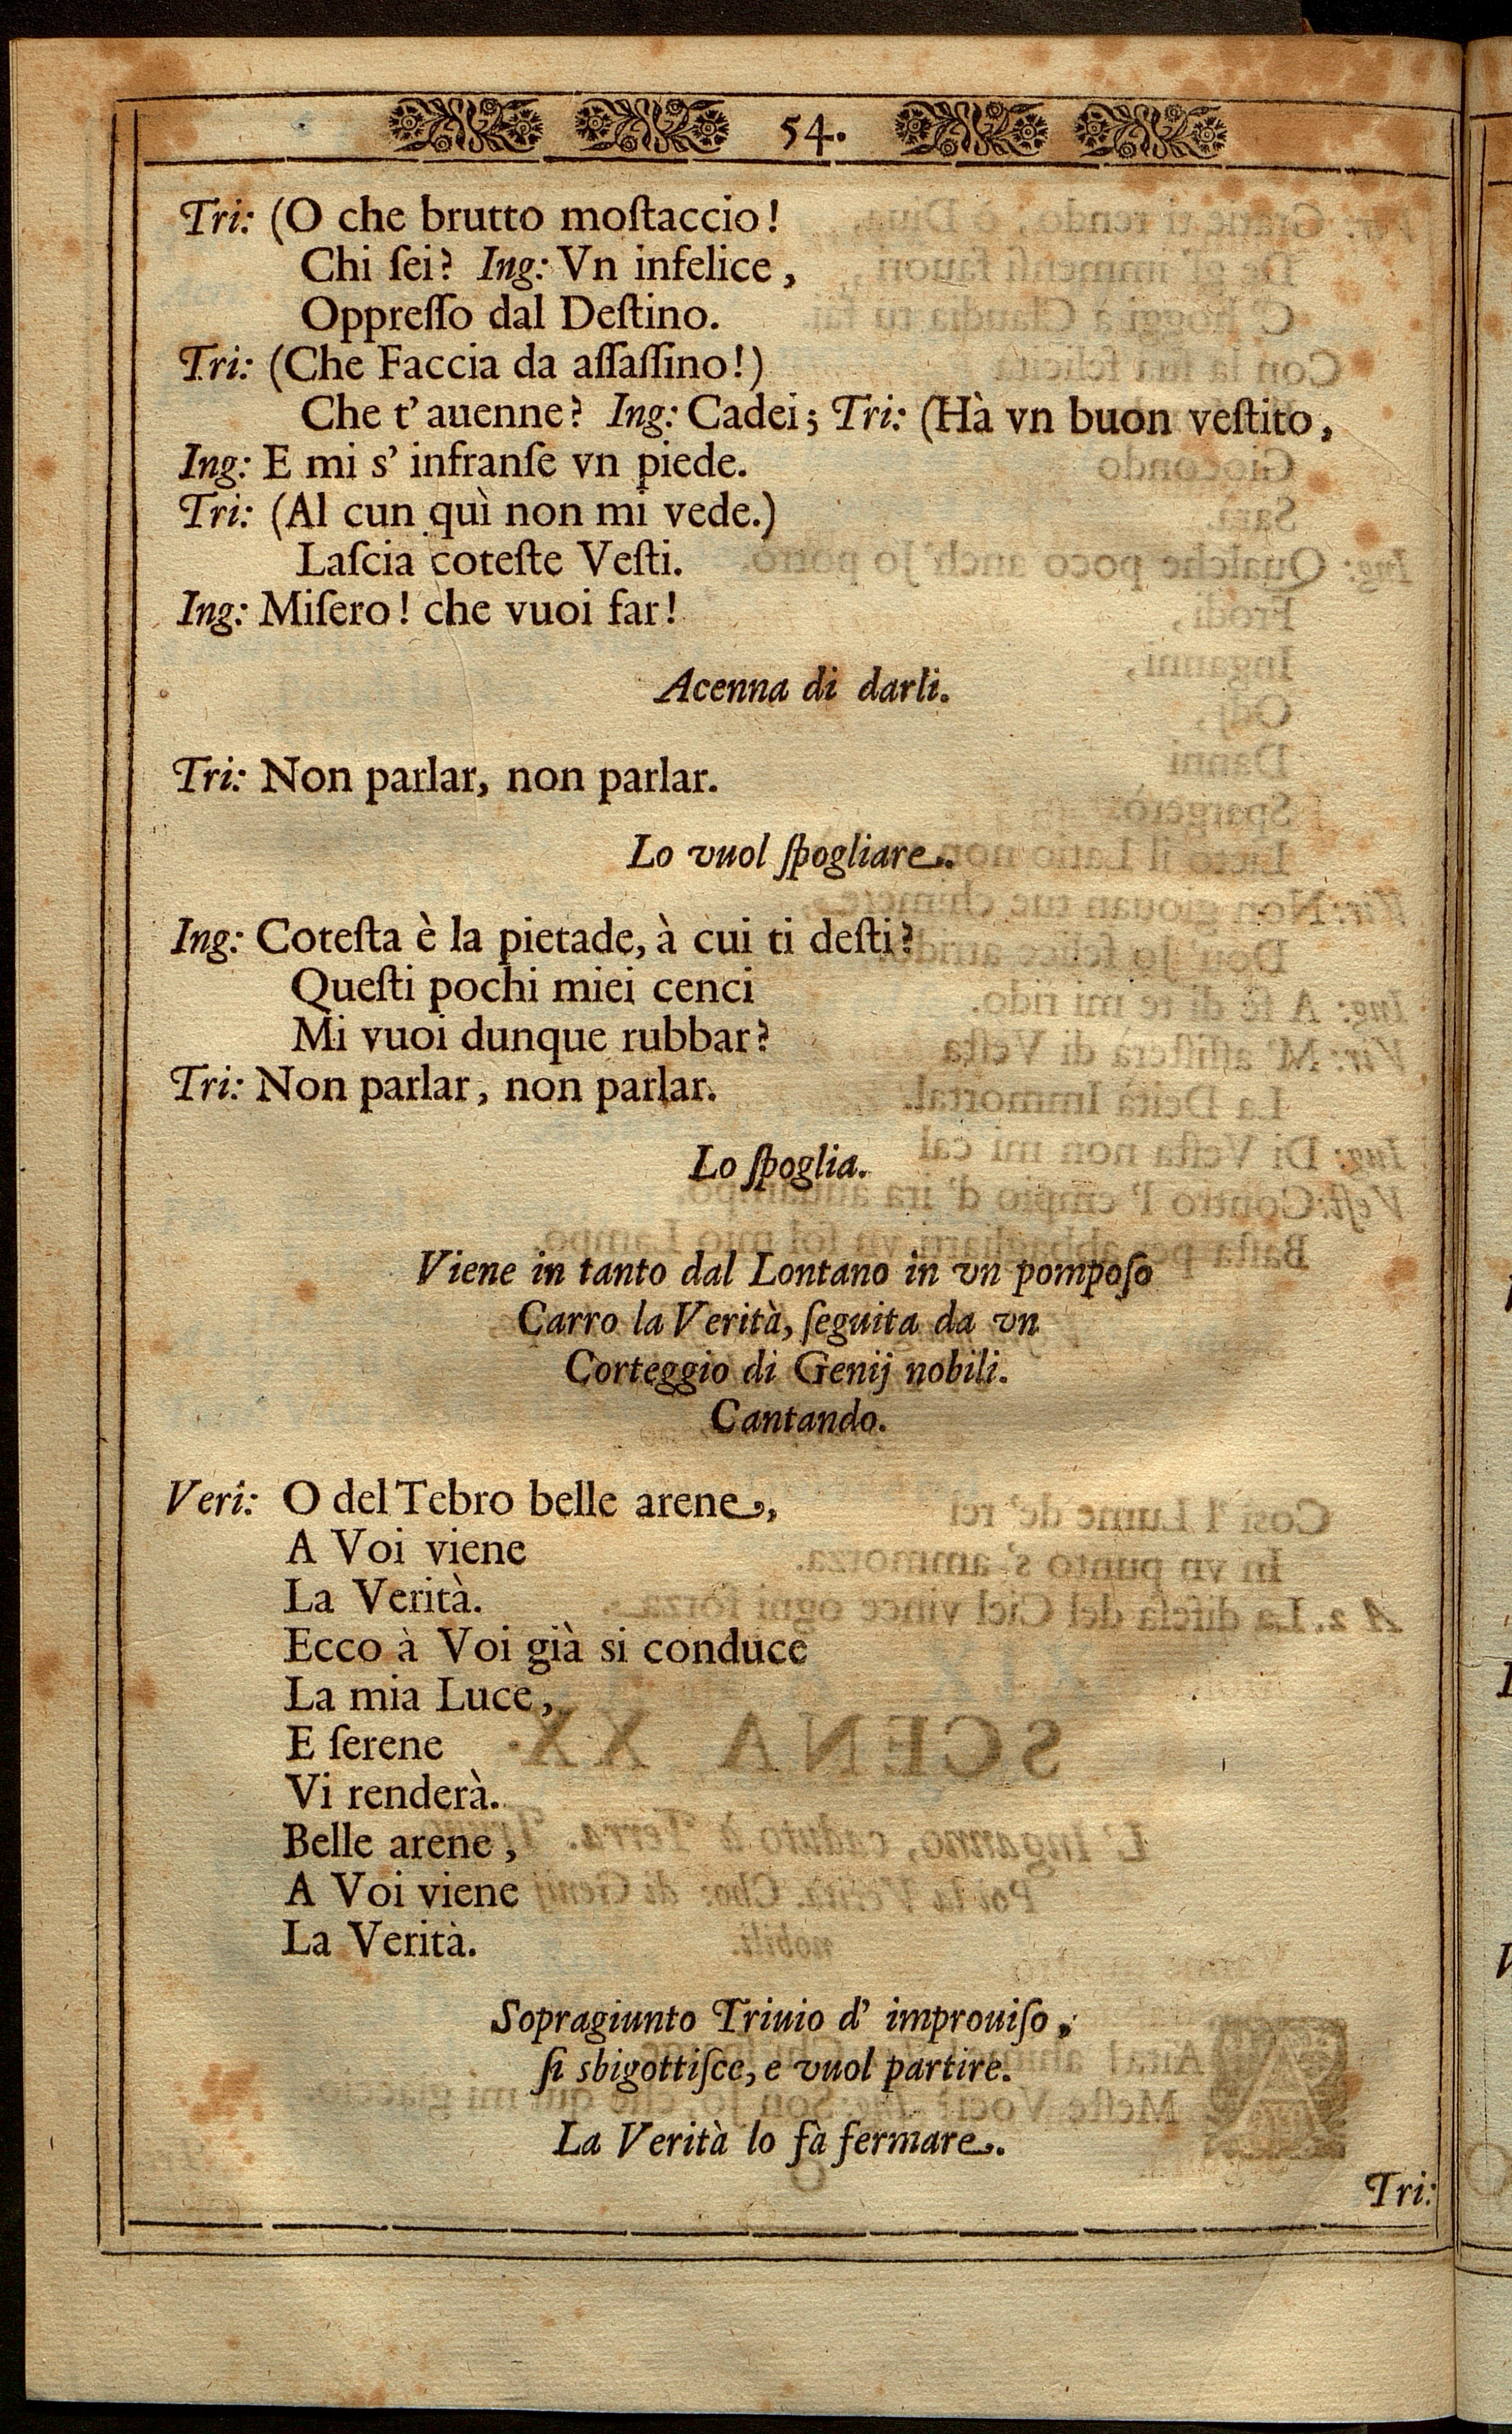 54.
Tri: (O che brutto moſtaccio!
Chi ſei? Ing: Vn infelice,
Oppreſſo dal Deſtino.
Tri: (Che Faccia da aſſaſſino!)
Che t' auenne? Ing: Cadei; Tri: (Hà vn buon veſtito,
Ing: E mi s' infranſe vn piede.
Tri: (Al cun quì non mi vede.)
Laſcia coteſte Veſti.
Ing: Miſero! che vuoi far!
Acenna di darli.
Tri: Non parlar, non parlar.
Lo vuol ſpogliare.
Ing: Coteſta è la pietade, à cui ti deſti?
Queſti pochi miei cenci
Mi vuoi dunque rubbar?
Tri: Non parlar, non parlar.
Lo ſpoglia.
Viene in tanto dal Lontano in vn pompoſo
Carro la Verità, ſeguita da vn
Corteggio di Genij nobili.
Cantando.
Veri: O del Tebro belle arene,
A Voi viene
La Verità.
Ecco à Voi già si conduce
La mia Luce,
E ſerene
Vi renderà.
Belle arene,
A Voi viene
La Verità.
Sopragiunto Triuio d' improuiſo,
ſi sbigottiſce, e vuol partire.
La Verità lo fà fermare.
Tri: